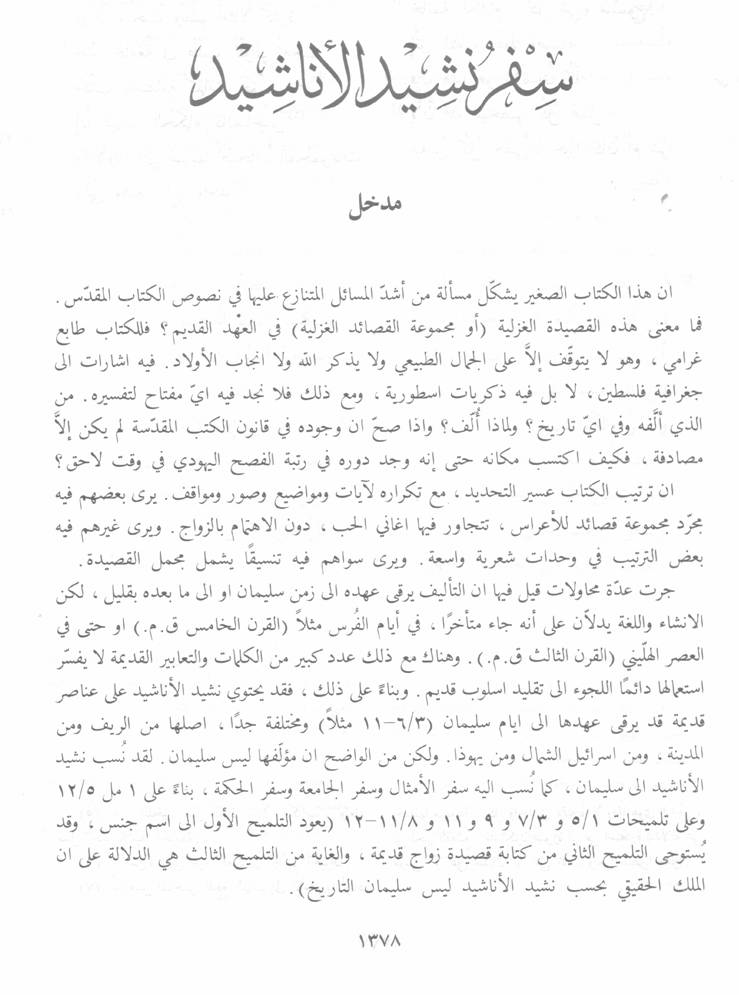 سِفْرُ نَشِيْدِ الأَناشِيْد
مدخل
ان هذا الكتاب الصغير يشكّل مسألة من أشدّ المسائل المتنازع عليها في نصوص الكتاب المقدّس .
فما معنى هذه القصيدة الغزلية (أو مجموعة القصائد الغزلية) في العهْد القديم ؟ فللكتاب طابع
غرامي ، وهو لا يتوقّف إلاَّ على الجمال الطبيعي ولا يذكر الله ولا انجاب الأولاد. فيه اشارات الى
جغرافية فلسطين ، لا بل فيه ذكريات اسطورية ، ومع ذلك فلا نجد فيه ايّ مفتاح لتفسيره. من
الذي ألَّفه وفي ايّ تاريخ ؟ ولماذا أُلّف ؟ واذا صحّ ان وجوده في قانون الكتب المقدّسة لم يكن إلاَّ
مصادفة ، فكيف اكتسب مكانه حتى إنه وجد دوره في رتبة الفصح اليهودي في وقت لاحق ؟
ان ترتيب الكتاب عسير التحديد ، مع تكراره لآيات ومواضيع وصور ومواقف. يرى بعضهم فيه
مجرّد مجموعة قصائد للأعراس ، تتجاور فيها اغاني الحب ، دون الاهتمام بالزواج. ويرى غيرهم فيه
بعض الترتيب في وحدات شعرية واسعة. ويرى سواهم فيه تنسيقًا يشمل مجمل القصيدة.
جرت عدّة محاولات قيل فيها ان التأليف يرقى عهده الى زمن سليمان او الى ما بعده بقليل ، لكن
الانشاء واللغة يدلاّن على أنه جاء متأخرًا ، في أيام الفُرس مثلاً (القرن الخامس ق.م.) او حتى في
العصر الهلّيني (القرن الثالث ق.م.). وهناك مع ذلك عدد كبير من الكلمات والتعابير القديمة لا يفسّر
استعمالها دائمًا اللجوء الى تقليد اسلوب قديم. وبناءً على ذلك ، فقد يحتوي نشيد الأناشيد على عناصر
قديمة قد يرقى عهدها الى ايام سليمان (٣/٦-١١ مثلاً) ومختلفة جدًا ، اصلها من الريف ومن
المدينة ، ومن اسرائيل الشمال ومن يهوذا. ولكن من الواضح ان مؤلّفها ليس سليمان. لقد نُسب نشيد
الأناشيد الى سليمان ، كما نُسب اليه سفر الأمثال وسفر الجامعة وسفر الحكمة ، بناءً على ١ مل ٥/١٢
وعلى تلميحات ١/٥ و ٣/٧ و ٩ و ١١ و ٨/١١-١٢ (يعود التلميح الأول الى اسم جنس ، وقد
يُستوحى التلميح الثاني من كتابة قصيدة زواج قديمة ، والغاية من التلميح الثالث هي الدلالة على ان
الملك الحقيقي بحسب نشيد الأناشيد ليس سليمان التاريخ).
١٣٧٨